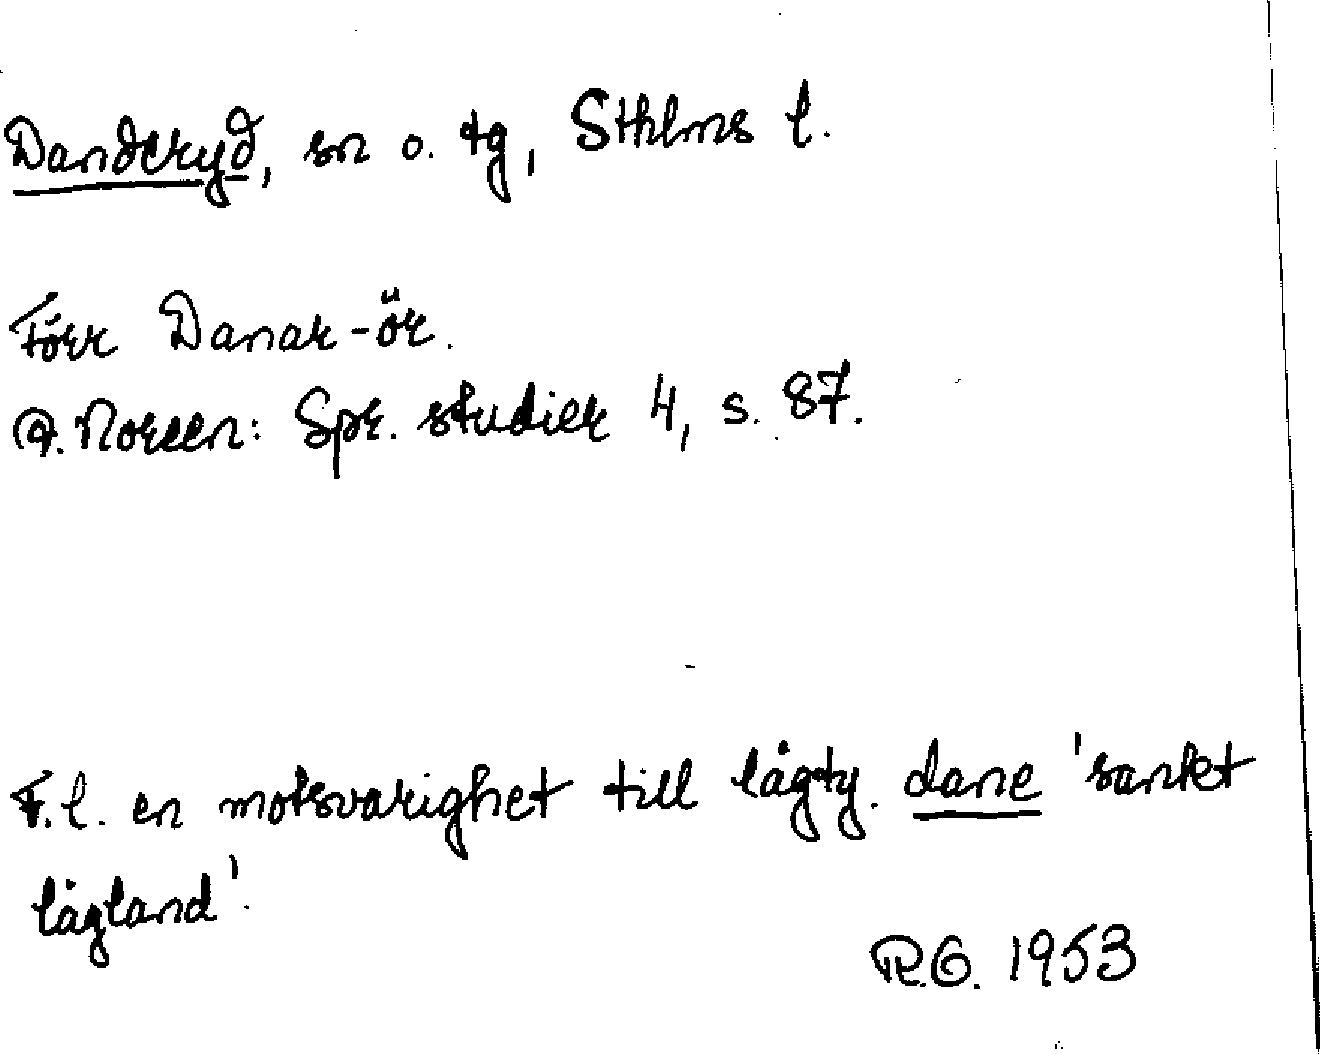 Danderyd, sn o. tg, Sthlms l.
Förr Danar-ör.
A. Noreen: Spr. studier 4, s. 87.
F.l. en motsvarighet till lågty. dane 'sankt
lågland'.
R.G. 1953